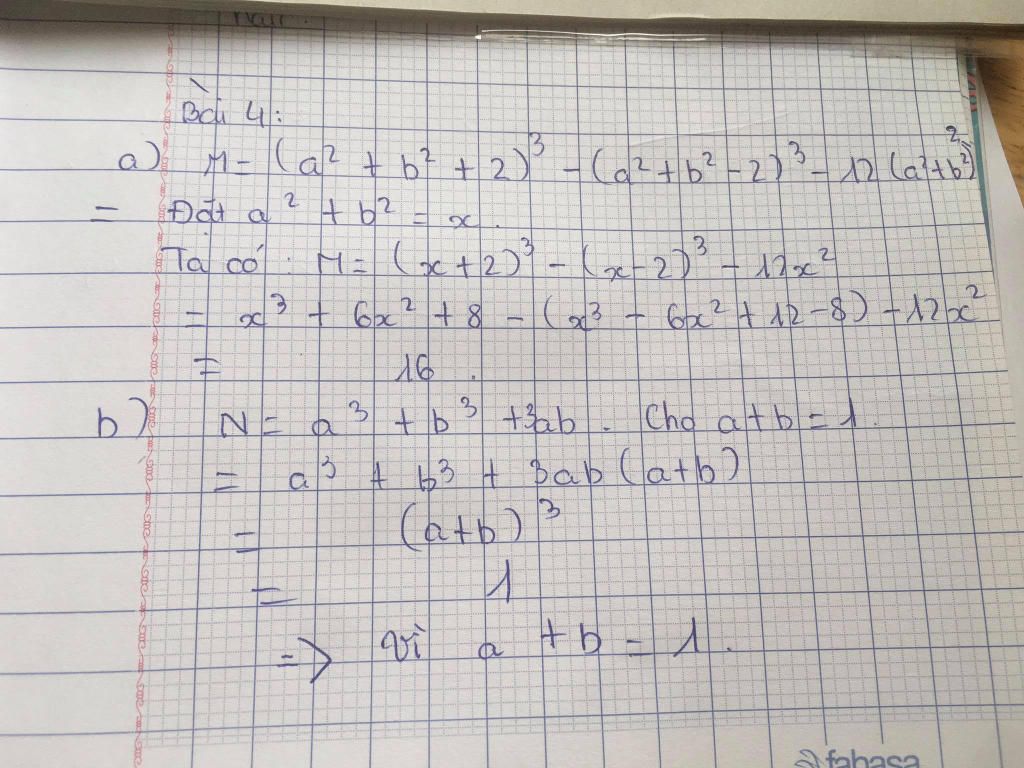 Bài 4:
a) M = (a² + b² + 2)³ - (a² + b² - 2)³ - 12(a² + b²)²
= Đặt a² + b² = x.
Ta có: M = (x+2)³ - (x-2)³ - 12x²
= x³ + 6x² + 8 - (x³ - 6x² + 12 - 8) - 12x²
= 16.
b) N = a³ + b³ + 3ab. Cho a+b = 1.
= a³ + b³ + 3ab(a+b)
= (a+b)³
= 1
=> Vì a + b = 1.
fahasa